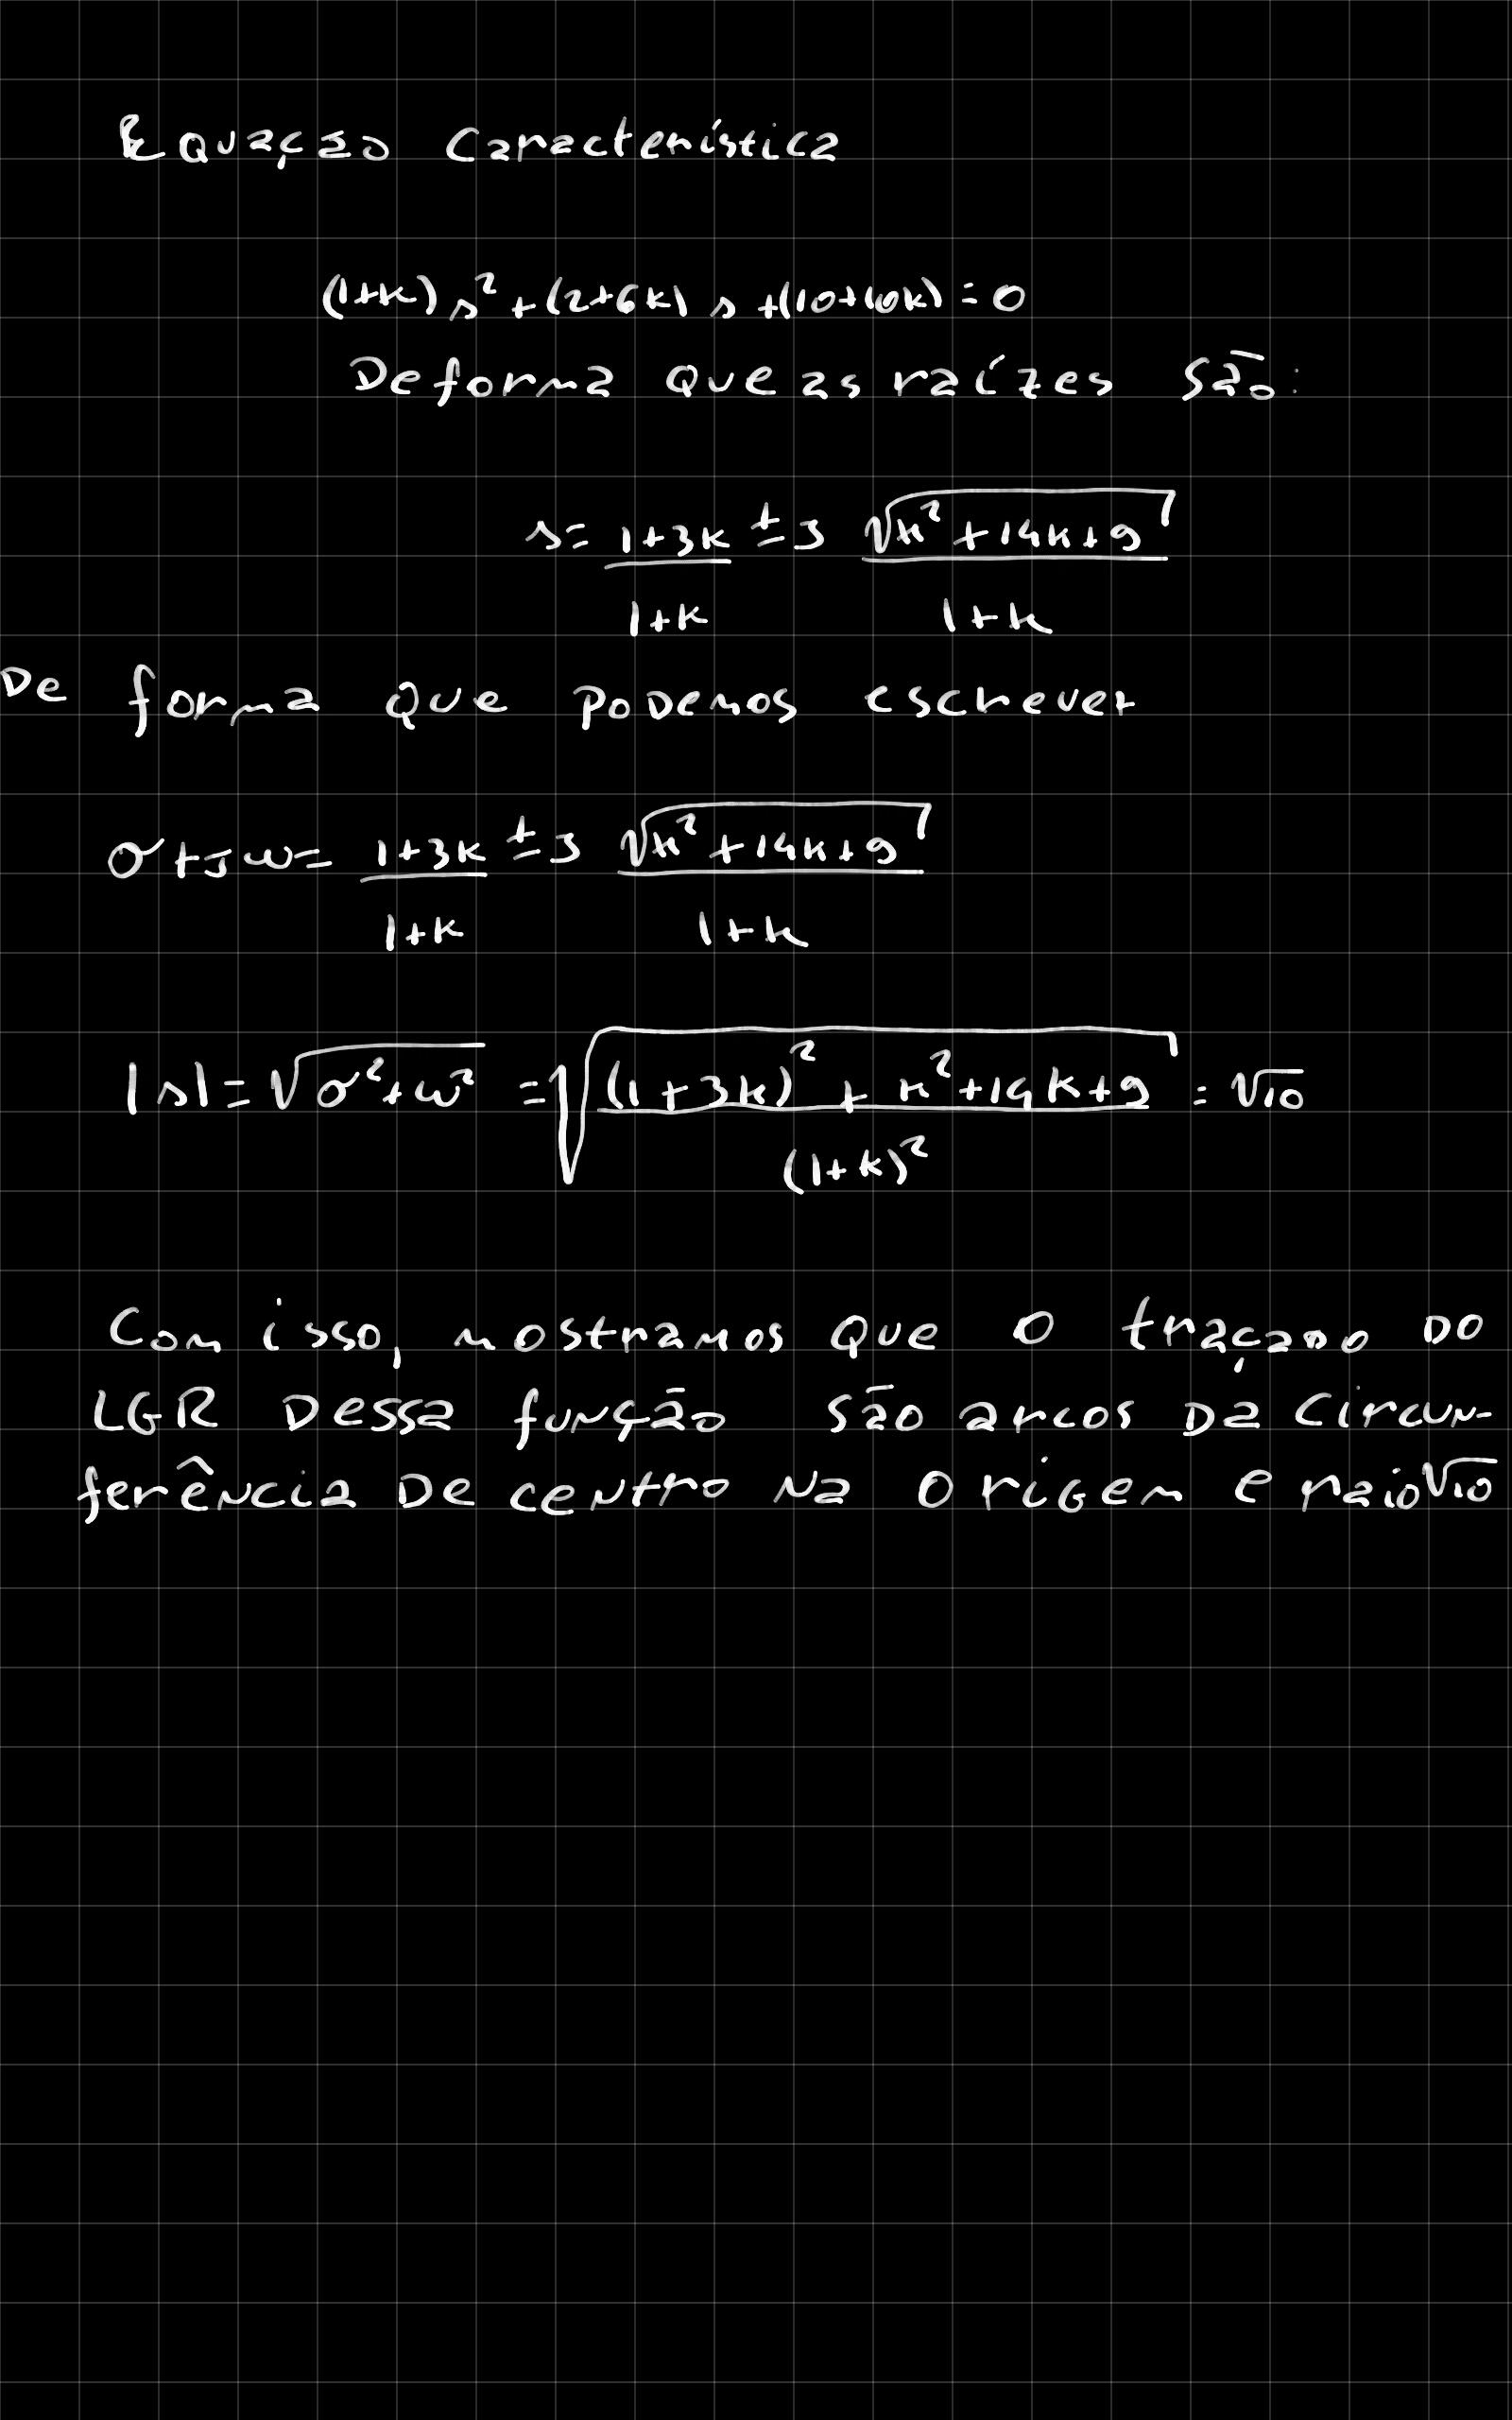 Equação Característica
(1+k) s² + (2+6k) s + (10+10k) = 0
De forma que as raízes são:
s = 1+3k/1+k ± j √(k² + 14k + 9)/1+k
De forma que podemos escrever
σ + jω = 1+3k/1+k ± j √(k² + 14k + 9)/1+k
|s| = √(σ² + ω²) = √((1+3k)² + k² + 14k + 9/(1+k)²) = √10
Com isso, mostramos que o traçado do
LGR dessa função são arcos da circun-
ferência de centro na origem e raio √10